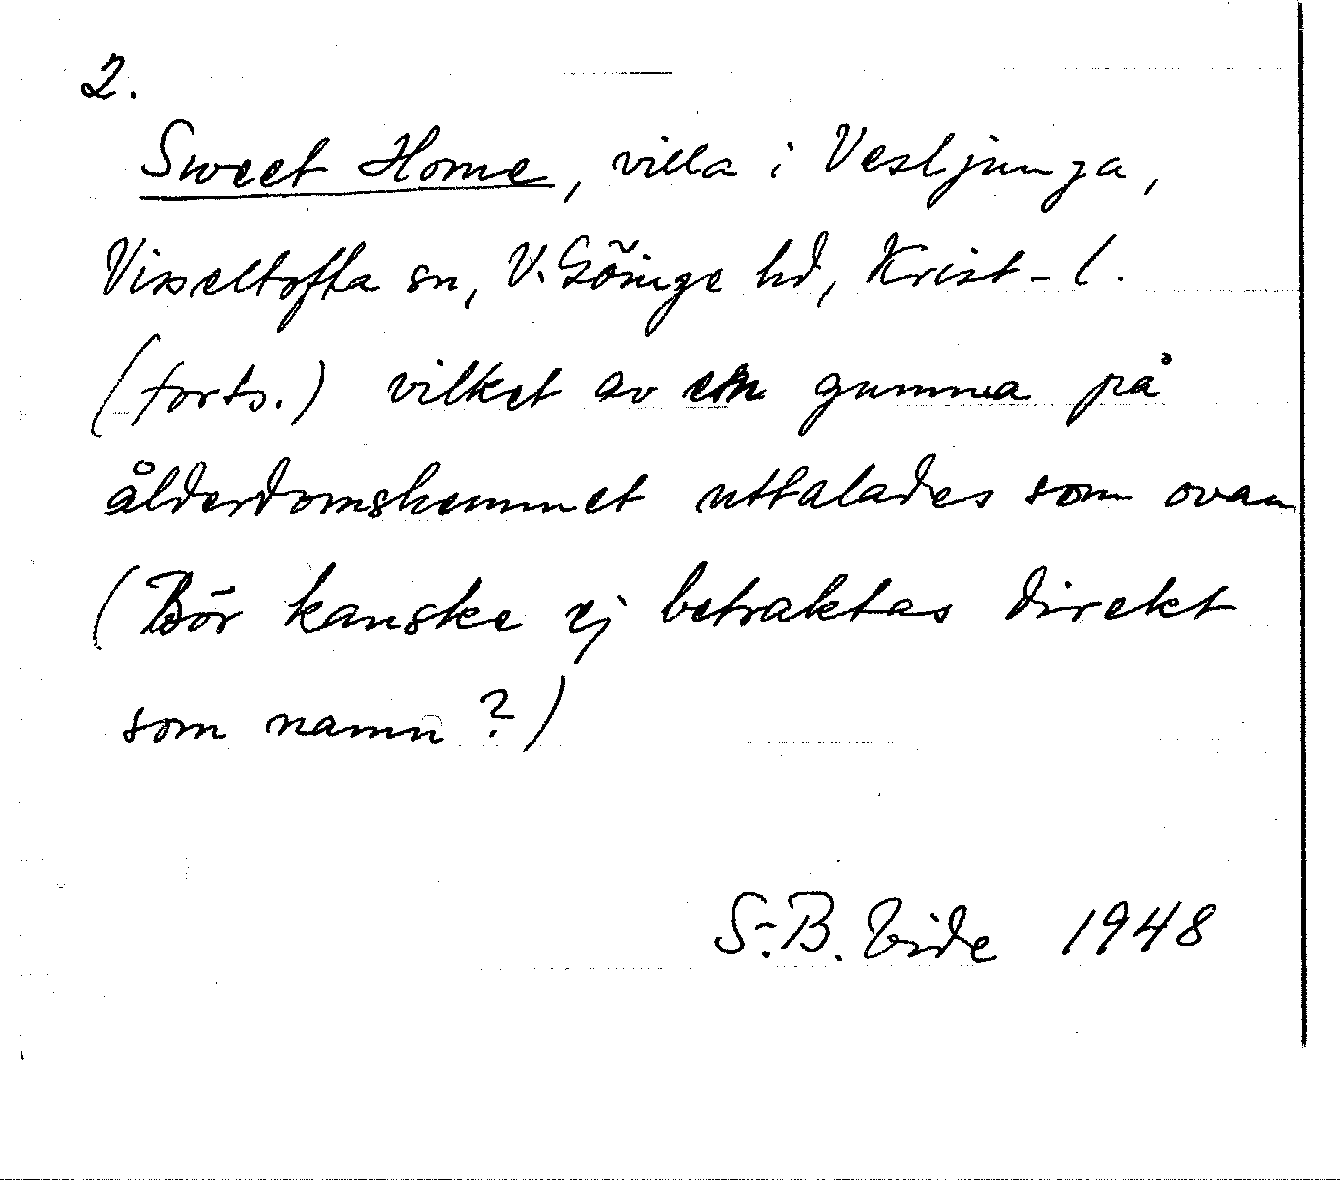 2.
Sweet Home, villa i Vesljunga,
Visseltofta sn, V. Göinge hd, Krist-l.
(forts.) vilket av en gumma på
ålderdomshemmet uttalades som ovan
(Bör kanske ej betraktas direkt
som namn?)
S.-B. Vide 1948